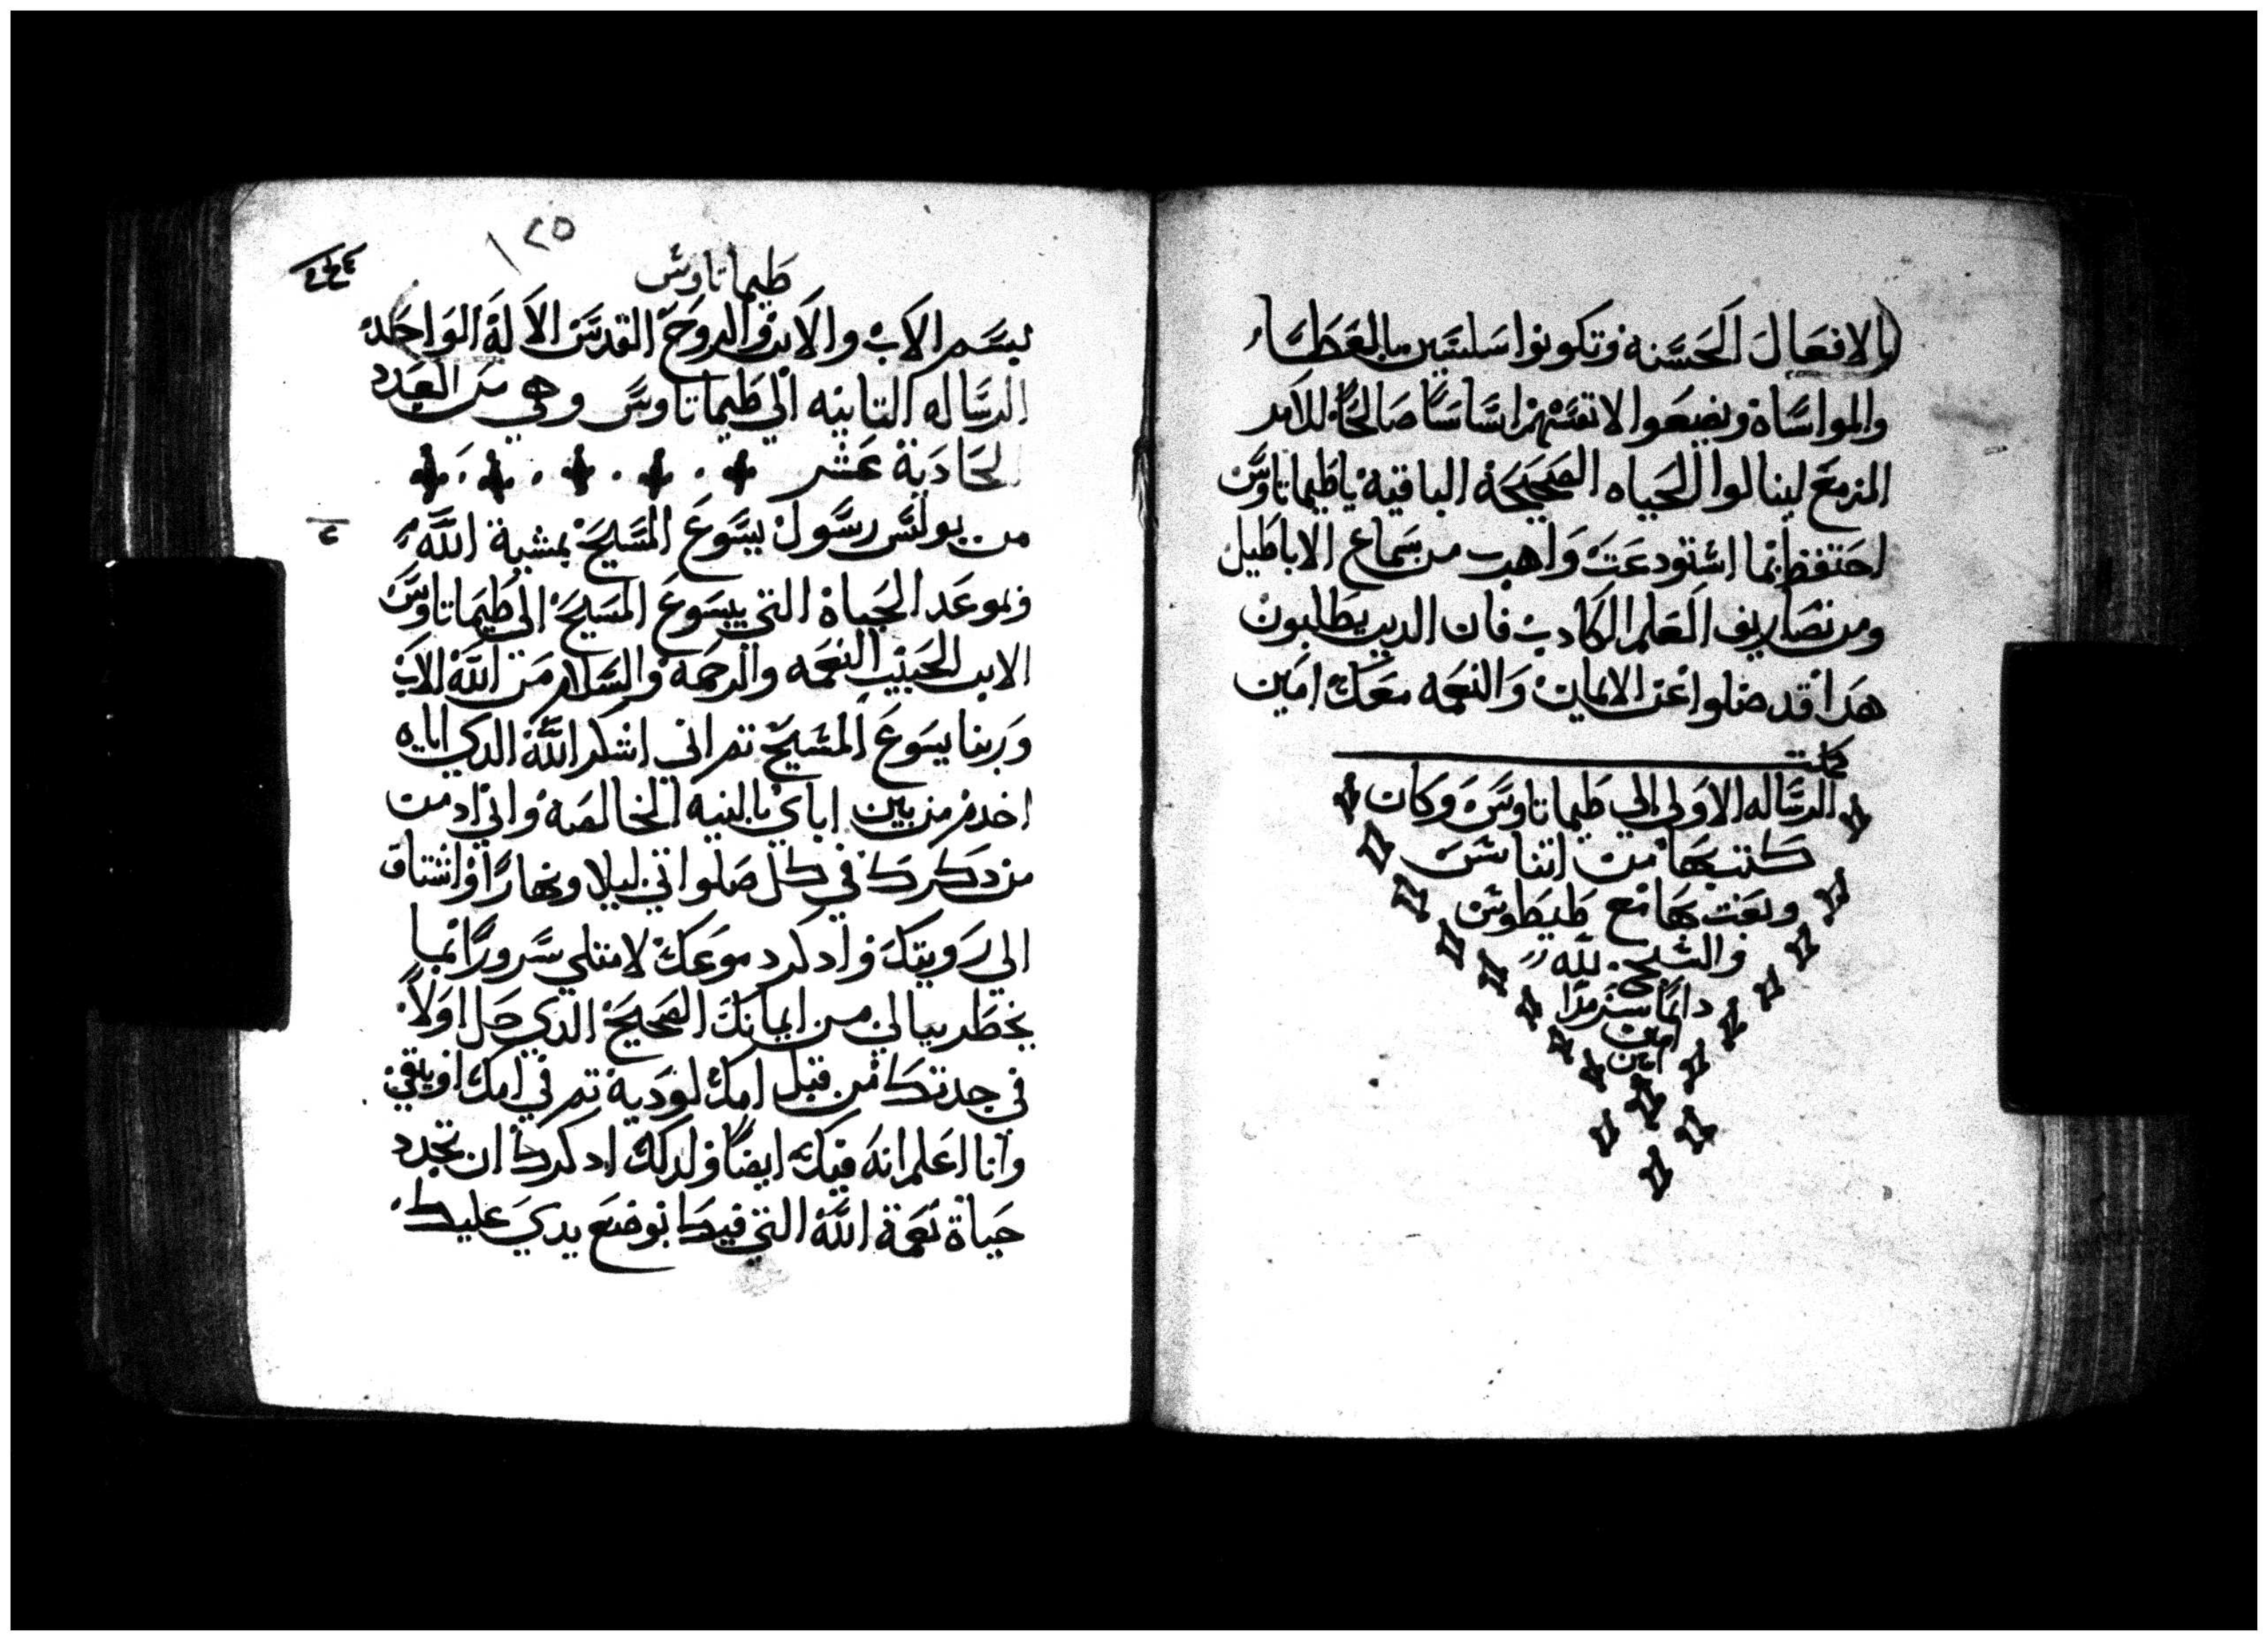 بالافعَالَ الحَسَّنه وَتكونوا سَلسَيين بالعَطَاء
والمواسَّاة ويضعَوا لانفسَّهمْ اسَّاسًا صَالحًا للامر
المزمعَ لينالوا الحَياه الصَحيحَة الباقية ياطَيماتاوسَ
احَتفظ بما اسْتودعَتَ وَاهرب من سَماع الاباطَيل
ومن تصَاريف العَلم الكادب فان الدين يطَلبون
هدا قد ضلوا عَن الايمان وَالنعمه معَك امين
كملت
الرسَّاله الاولي الي طَيماتاوسَ وكان
كتب بهَا من اتناسَس
وبعَت بهَا مَع طَيطَوسَ
والسَبح لله
دايمًا سرمدًا
امين
امين
٢٥
طَيماتاوسَ
بسَم الابْ والابن والروحَ القدسَ الالة الواحَد
الرسَّاله التانيه الي طَيماتاوسَ وهي من العَدد
الحَادية عَشر
من بولسَ رسَّول يسَّوعَ المسَيحَ بمشية اللَّه
وبموعَد الحَياة التي بيسَوعَ المسَيحَ الي طَيماتاوسَ
الابن الحَبيب النعَمه والرحمة والسَلام مَن اللَّه الاب
وَربنا يسَوعَ المسَّيحَ تم اني اشكر اللَّه الدي اياه
اخدم من بين اباي بالنيه الخالصَة واني ادمت
من دكرك في كل صَلواتي ليلا ونهارًا واشتاق
الي رَويتك وادكر دموعَك لامتلي سَّرورًا بما
يخطَر ببالي من ايمانك الصَحيحَ الدي حَل اوَلاً
في جدتك من قبل امك لودَية تم في امك اونيقي
وانا اعَلم انهَ فيك ايضًا ولدلك ادكرك ان تجدد
حَياة نعَمة اللَّه التي فيك بوضعَ يديَ عليك